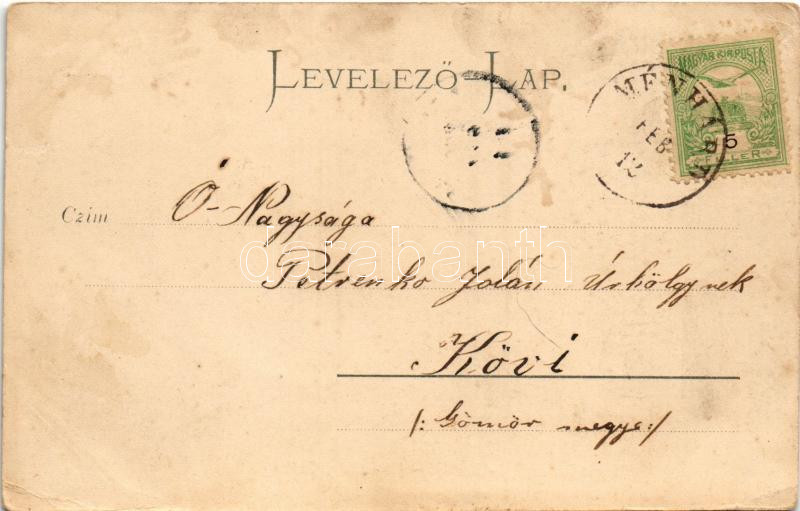 LEVELEZŐ-LAP.
MAGYAR KIR. POSTA
5
FILLÉR
MÉNHÁRD
FEB
12
Czim
Ő-Nagysága
darabanth
Petrenko Jolán Úrhölgynek
Kövi
/: Gömör megye :/